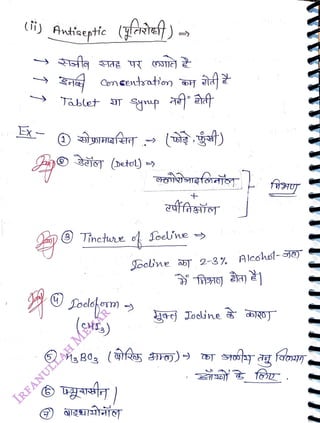 (ii) Antiseptic (पूतिरोधी) ⇒
→ सजीव सतह पर लगाते है
→ इनकी Concentration कम होती है
→ Tablet या Syrup नहीं होती
Ex-
① सोफ्रामाइसिन → (फोड़े, फुंसी)
② डेटॉल (Detol) ⇒
क्लोरोजाइलिनॉल
+
टर्पीनिऑल
मिश्रण
③ Tincture of Iodine →
Iodine का 2-3% Alcohol-जल
में मिश्रण होता है|
④ Iodoform →
(CHI₃)
मुक्त Iodine के कारण
⑤ H₃BO₃ (बोरिक अम्ल) → का जलीय तनु विलयन
आँखों के लिए.
⑥ फ्यूरासीन |
⑦ बाइथायोनॉल
IRFANULLAH MEHAR